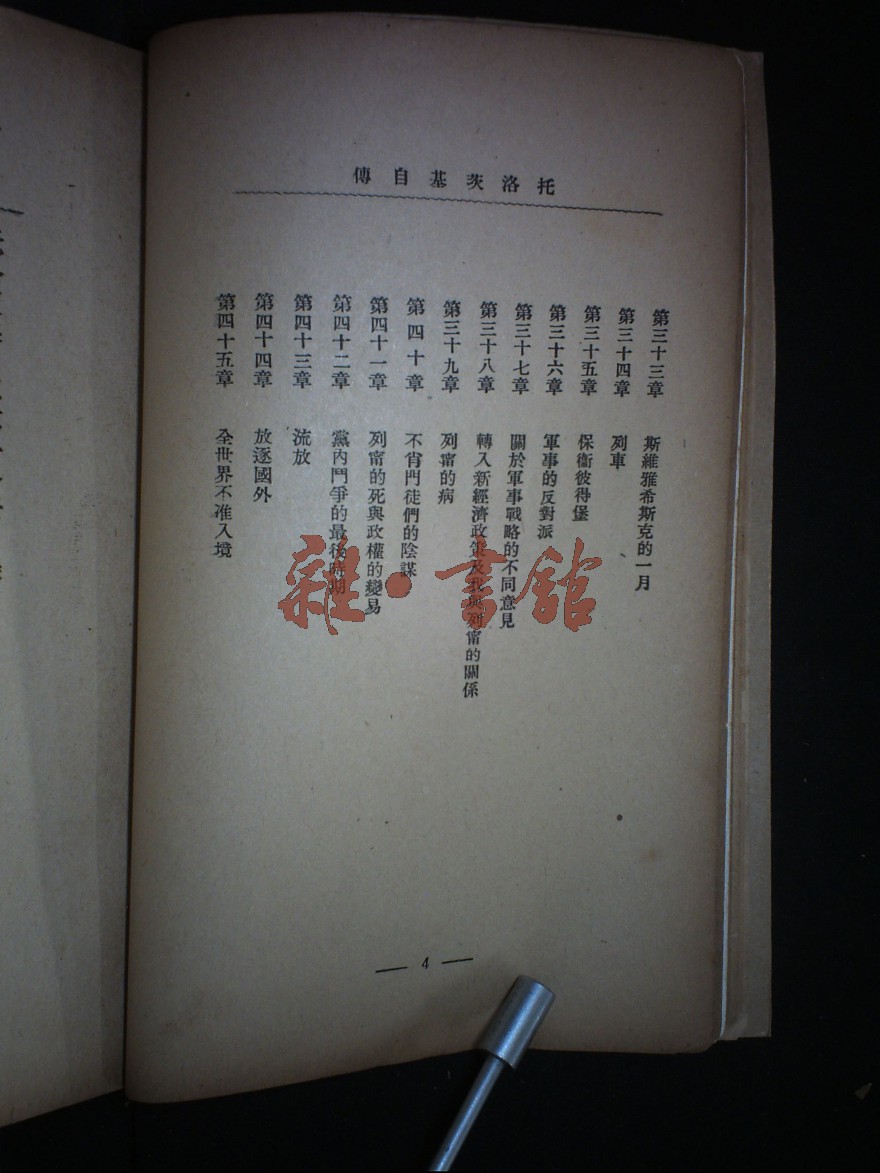 托洛茨基自傳
第三十三章 斯維雅希斯克的一月
第三十四章 列車
第三十五章 保衞彼得堡
第三十六章 軍事的反對派
第三十七章 關於軍事戰略的不同意見
第三十八章 轉入新經濟政策及我與列甯的關係
第三十九章 列甯的病
第四十章 不肖門徒們的陰謀
第四十一章 列甯的死與政權的變易
第四十二章 黨內鬥爭的最後時期
第四十三章 流放
第四十四章 放逐國外
第四十五章 全世界不准入境
雜·書館
— 4 —